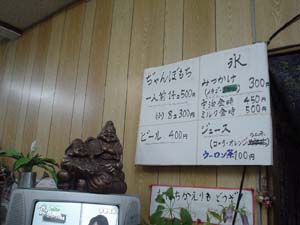 ぢゃんぼもち
一人前 14コ 500円
(小) 8コ 300円
ビール 400円
氷
みつかけ 300円
宇治金時 450円
ミルク金時 500円
ジュース
(コーラ・オレンジ
ウーロン茶 100円
ちかえりもどうぞ